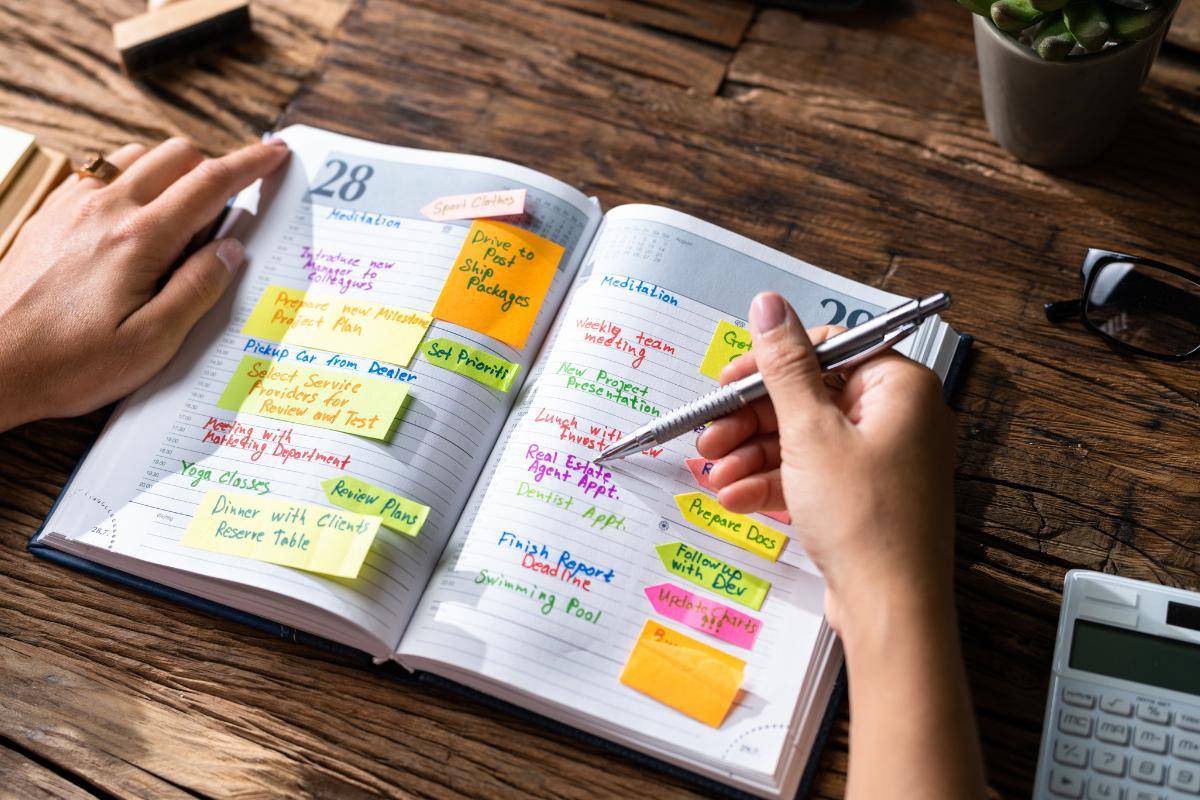 28
Sport Clothes
Meditation
Drive to
Post
Ship
Packages
Introduce new
Manager to
Colleagues
Prepare new Milestone
Project Plan
Set Prioriti
Pickup Car from Dealer
Select Service
Providers for
Review and Test
Meeting with
Marketing Department
Yoga Classes
Review Plans
Dinner with Clients
Reserve Table
28.7.
August
29
Meditation
Weekly team
meeting
Get
New Project
Presentation
Lunch with
Real Estate
Agent Appt.
Dentist Appt.
Prepare Docs
Finish Report
Deadline
Followup
with Dev
Swimming Pool
Update Charts
!!!
MC
MR
M-
M+
%
7
8
9